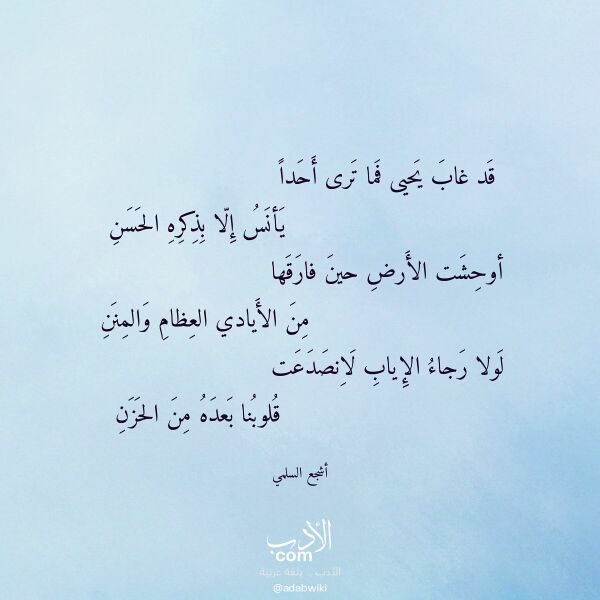 قَد غابَ يَحيى فَما تَرى أَحَداً
يَأنَسُ إِلّا بِذِكرِهِ الحَسَنِ
أوحِشَت الأَرضِ حينَ فارَقَها
مِنَ الأَيادي العِظامِ وَالمِنَنِ
لَولا رَجاءُ الإِيابِ لَاِنصَدَعَت
قُلوبُنا بَعدَهُ مِنَ الحَزَنِ
أشجع السلمي
الأدب
com
الأدب .. بلغة عربية
@adabwiki